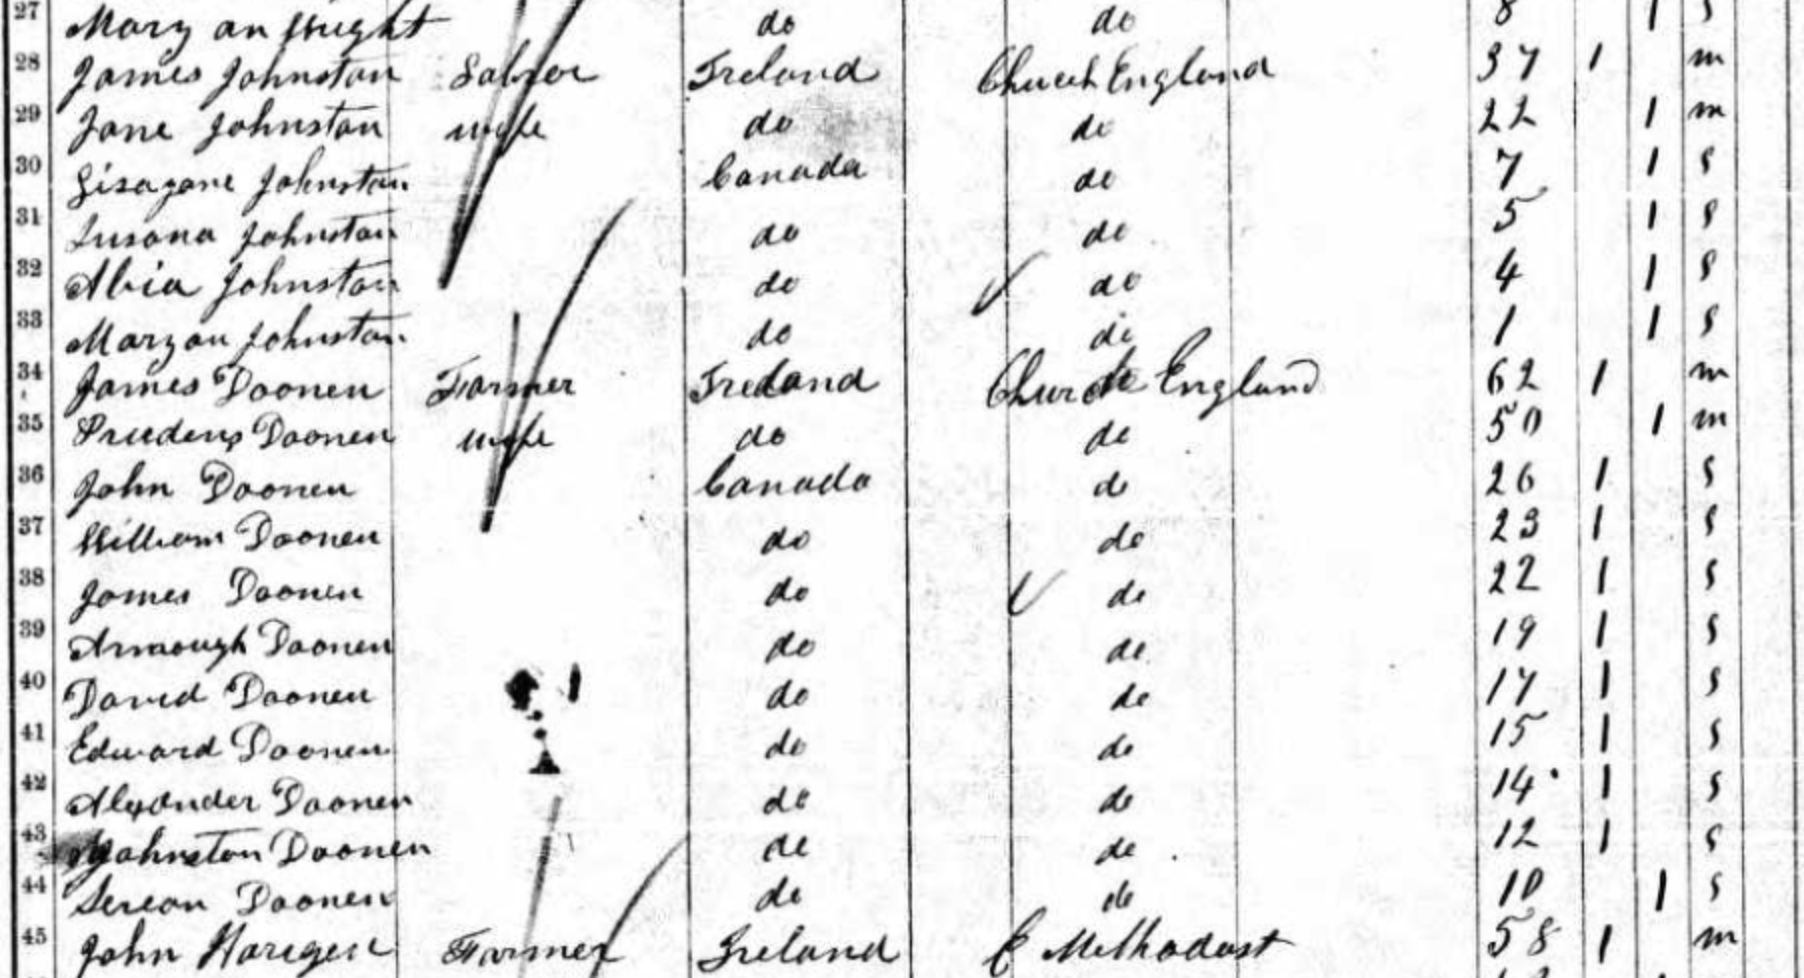 27 Mary an do do 8 1 s
28 James Johnston Labror Ireland Church England 37 1 m
29 Jane Johnston wife do do 22 1 m
30 Lizajane Johnston Canada do 7 1 s
31 Susana Johnston do do 5 1 s
32 Johnston do do 4 1 s
33 Maryan Johnston do do 1 1 s
34 James Doonen Farmer Ireland Church England 62 1 m
35 Prudens Doonen wife do do 50 1 m
36 John Doonen Canada do 26 1 s
37 William Doonen do do 23 1 s
38 James Doonen do do 22 1 s
39 Doonen do do 19 1 s
40 David Doonen do do 17 1 s
41 Edward Doonen do do 15 1 s
42 Alexander Doonen do do 14 1 s
43 Johnston Doonen do do 12 1 s
44 Doonen do do 10 1 s
45 John Farmer Ireland E Methodast 58 1 m